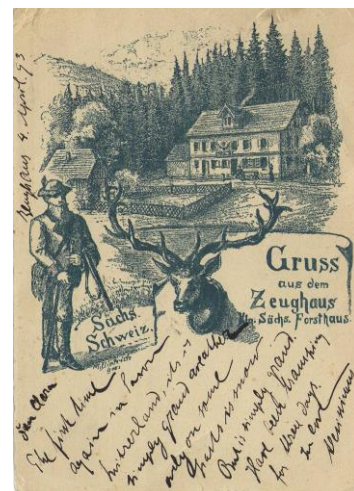 Zeughaus 4. April. 93
Gruss
aus dem
Zeughaus
Kgl. Sächs. Forsthaus.
Sächs.
Schweiz.
Dear Clara
The first time
again in Saxon
Switzerland, it is
simply grand weather
only on some
parts is snow
But is simply grand.
Have been tramping
for three days.